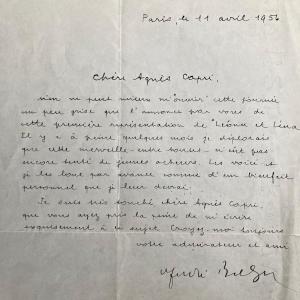 Paris, le 11 avril 1956
Chère Agnès Capri,
rien ne peut mieux m'ouvrir cette journée
un peu grise que l'annonce par vous de
cette première représentation de "Léonce et Léna
Il y a à peine quelques mois je déplorais
que cette merveille entre toutes n'eût pas
encore tenté de jeunes acteurs. Les voici et
je les loue par avance comme d'un bienfait
personnel que je leur devrai.
Je suis très touché chère Agnès Capri,
que vous ayez pris la peine de m'écrire
exquisement à ce sujet Croyez-moi toujours
votre admirateur et ami